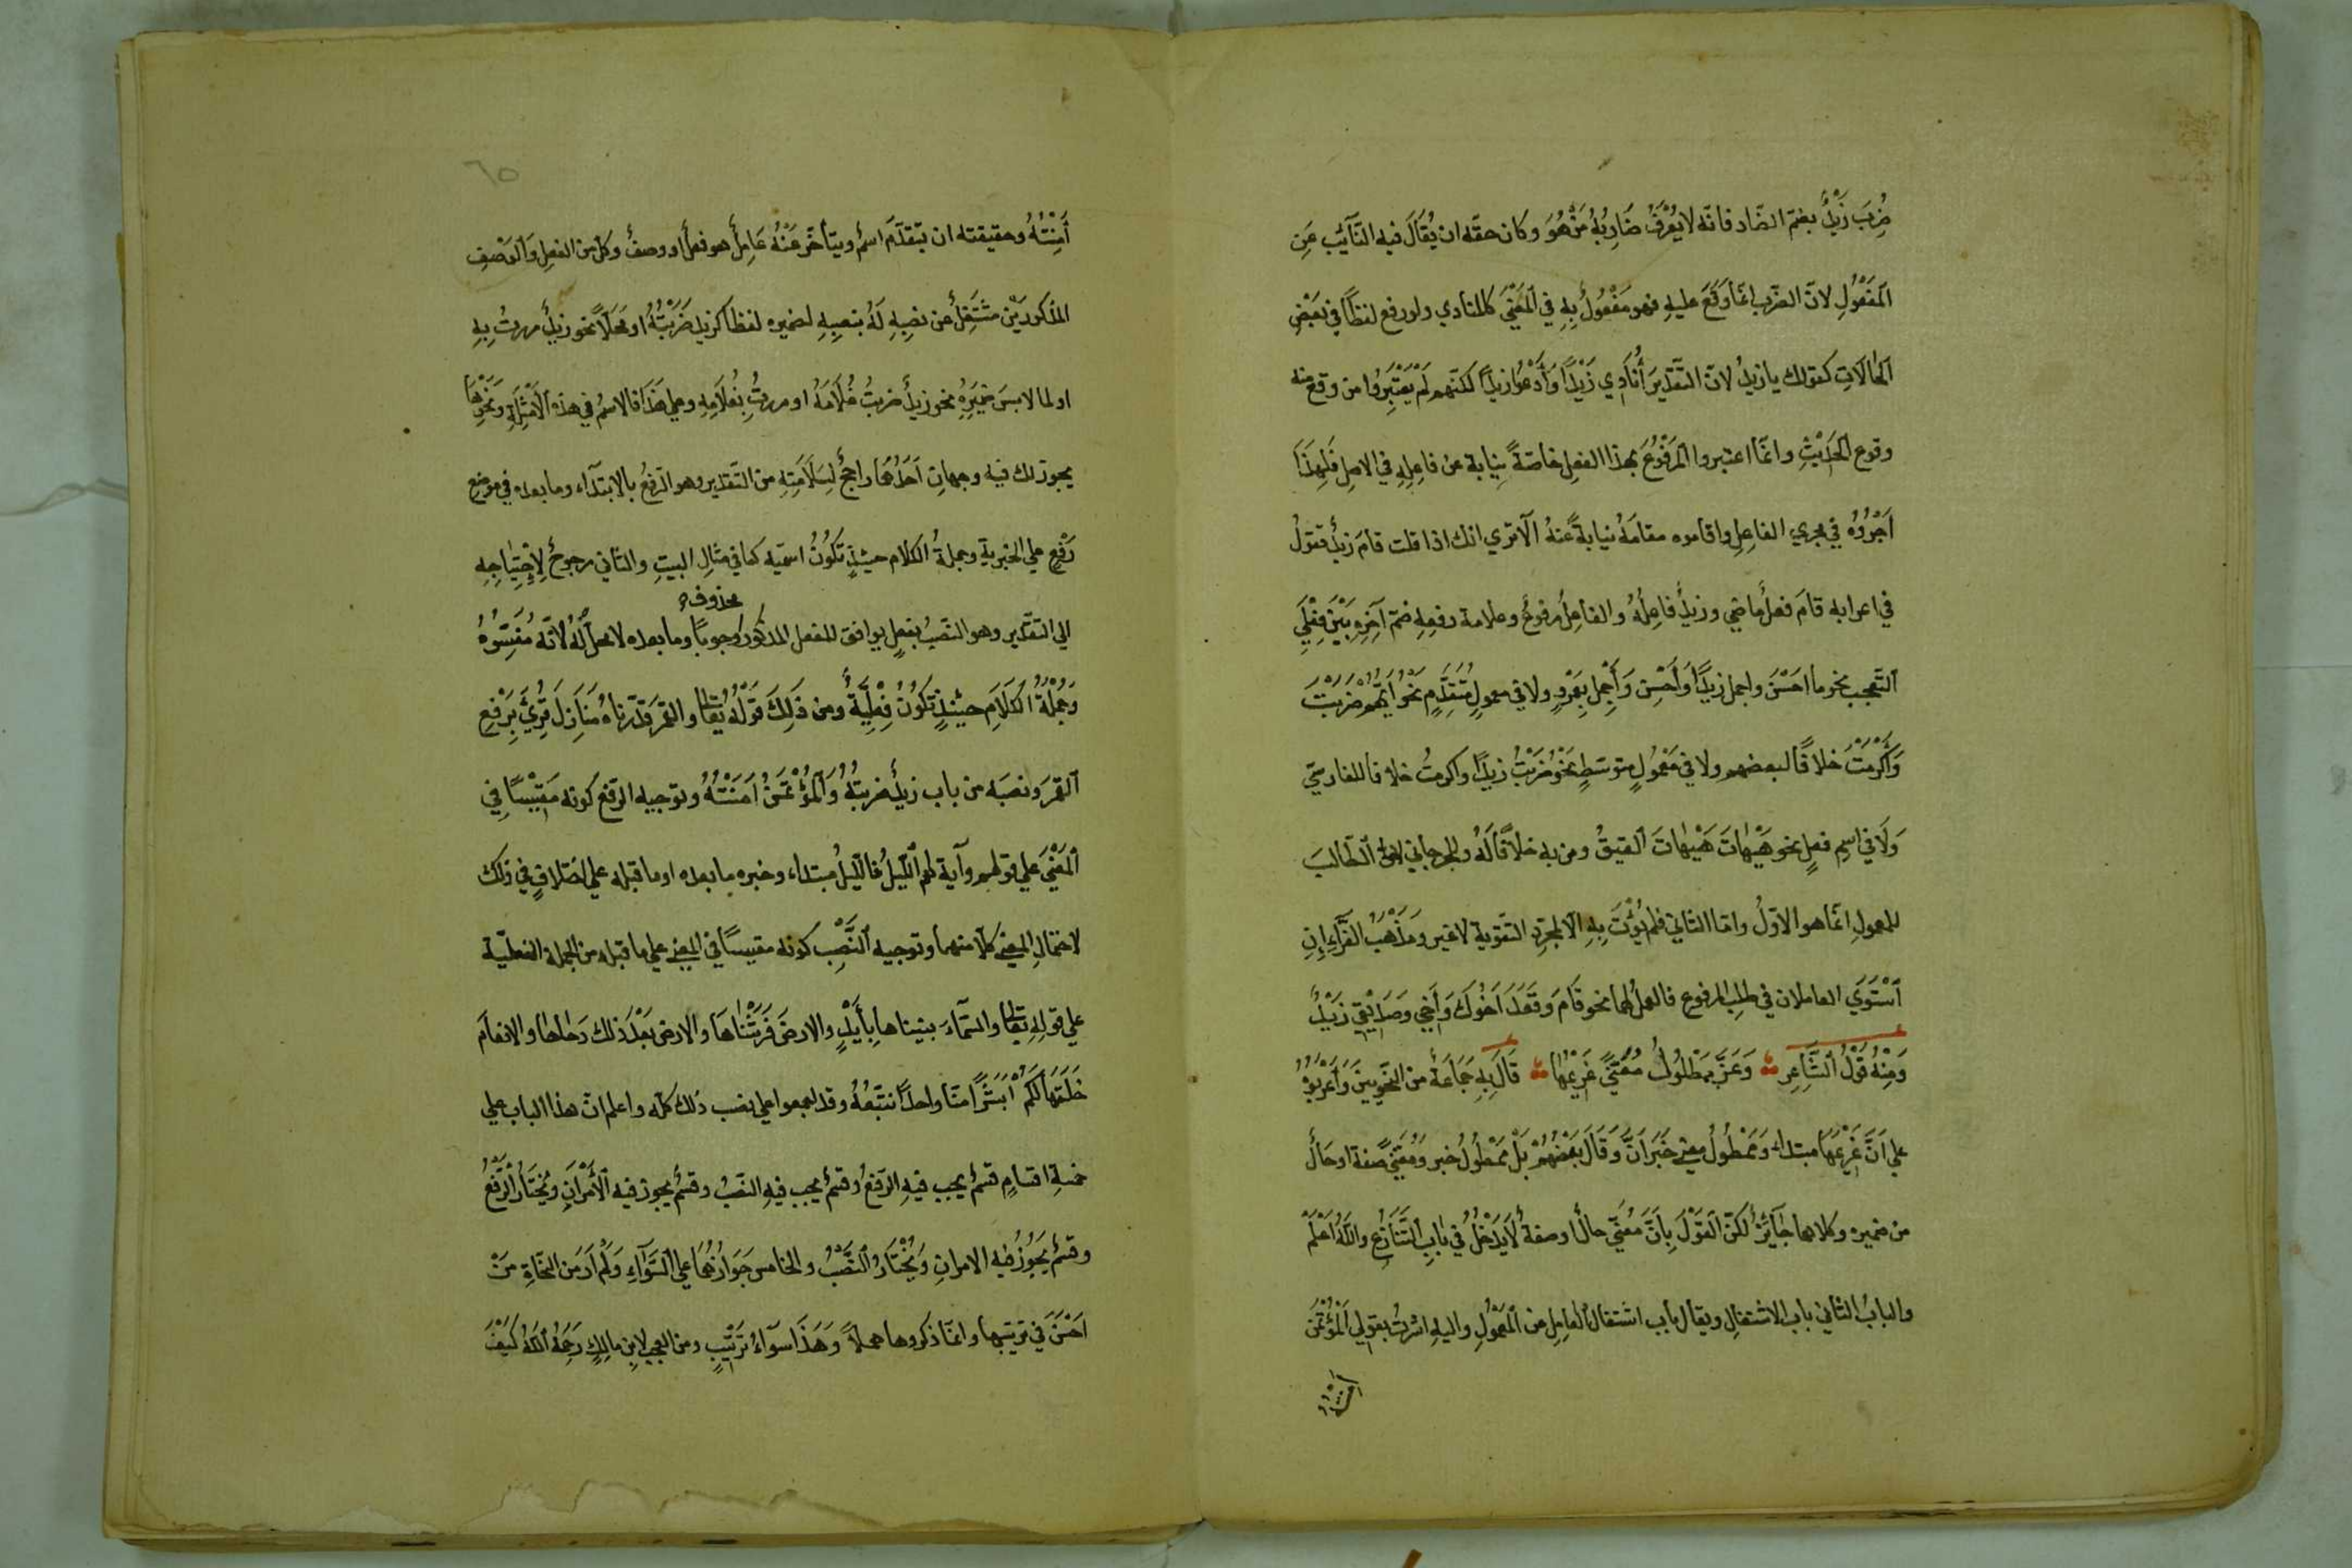 ضُرِبَ زَيْدٌ بضمّ الضّاد فانّه لا يُعْرَفُ ضَارِبُهُ مَنْ هُوَ وكان حقّه ان يُقَالَ فيه النَّآئِب عَنِ
اَلمَفْعُولِ لانّ الضّرب انّما وَقَعَ عليهِ فهو مَفْعُولٌ بِهِ في اَلمَعْنَى كالمنادي ولو رفع لفظاً في بَعْضِ
اَلحالاتِ كقولك يا زيدُ لانّ التّقديرَ أُنَادِي زَيْداً وَأَدْعُوا زيداً لكنّهم لَمْ يَعْتَبِرُوا من وقع منه
وقوع اَلحَدَثِ وانّما اعتبروا اَلمَرْفُوعَ بهذا الفعل خاصّةً بنيابة عن فاعِلِهِ في الاصل فَلِهَذَا
اَجْرَوْهُ في مجري الفاعِلِ واقاموه مقامَهُ نيابةً عَنْهُ اَلا تري انك اذا قلت قامَ زيدٌ فتقولُ
في اعرابه قامَ فعلٌ ماضي وزيدٌ فاعِلُهُ والفاعِلُ مرفوعٌ وعلامة رفعِهِ ضمّ آخِرِهِ بَيْنَ فِعْلَي
اَلتّعجب نحو ما احْسَنَ واجمل زيداً وَأَحْسِن وَأَجْمِل بِعَمْرٍو ولا في معمولٍ مُتَقَدِّمٍ نَحْوُ أَيَّهُمْ ضَرَبْتَ
وَأَكْرَمْتَ خلافًا لبعضهم ولا في مَعْمُولٍ متوسّطٍ نَحْوُ ضَرَبْتُ زيداً واكرمتُ خلافا للفارسيّ
وَلَا في اسمِ فعلٍ نحو هَيْهاتَ هَيْهاتَ اَلعقيقُ ومن به خلافًا لَهُ وللجرجاني لانّ اَلطّالبَ
للمعمولِ انّما هو الاوّلُ وامّا الثّاني فلم يُؤْتَ بِهِ اِلّا لمجرّدِ التّقوية لا غير ومَذْهَبُ الفَرَّآءِ إِنِ
اَسْتَوَي العاملان في طلب المرفوع فالعملُ لهما نحو قَامَ وَقَعَدَ اَخُوكَ وَأَخِي وَصَدِيْقِي زَيْدٌ
وَمِنْهُ قَوْلُ اَلشَّاعِرِ وَعَزَّةُ مَمْطُولٌ مُعَنًّي غَرِيْمُهَا قَالَ بِهِ جَمَاعَةٌ من النّحويينَ وَأَعْرَبُوْا
علي اَنَّ غَرِيْمُهَا مبتداء وَمَمْطُولٌ ومعني خَبَرَانِ وَقَالَ بَعْضُهُمْ بَلْ مَمْطُولٌ خبر وَمُعَنًّي صفة او حَالٌ
من ضميره وكلاهما جَآئِزٌ لكنّ اَلقَوْلَ بِاَنَّ مُعَنًّي حالٌ او صفةٌ لَا يَدْخُلُ في بابِ اَلتَّنَازُعِ والله اَعْلَمُ
والبابُ الثّاني باب الاشتغالِ ويقال باب اشتغال العامِلِ عن اَلمَعْمُولِ واليهِ اشرتُ بقولي اَلمُؤْتَمَنُ
أَمِنْتُهُ وحقيقته ان يتقدّم اسمٌ ويتأخّر عَنْهُ عَامِلٌ هو فعلٌ او وصفٌ وكلٌّ من الفعلِ وَاَلوَصْفِ
المذكورَيْن مُشْتَغِلٌ عن نصبِهِ لَهُ بنصبِهِ لضميره لفظا كزيد ضَرَبْتُهُ او مَحَلّاً نحو زيدٌ مررتُ بِهِ
او لما لابسَ ضَمِيْرَهُ نحو زيدٌ ضربتُ غُلَامَهُ او مررتُ بِغُلَامِهِ وعلي هَذَا فالاسمُ في هذه اَلأَمْثِلَةِ وَنَحْوِهَا
يجوز لك فيه وجهانِ اَحَدُهُمَا راجحٌ لِسَلَامَتِهِ من التّقدير وهو الرّفعُ بالابتدآءِ وما بعده في موضعِ
رَفْعٍ علي الخبرية وجملةُ الكلامِ حينئذٍ تكُونُ اسميّه كما في مثالِ البيتِ والثّاني مرجوحٌ لِاِحْتِيَاجِهِ
الي التّقديرِ وهو النّصْبُ بفعلٍ يوافق للفعل المذكور محذوف وجوباً وما بعده لا محلّ لَهُ لانّه مُفَسِّرُهُ
وَجُمْلَةُ الكَلَامِ حينئذٍ تَكُوْنُ فِعْلِيَّةً ومن ذَلِكَ قَوْلُهُ تَعَالَي والقمر قدّرناه مَنَازِلَ قُرِئَ بِرَفْعِ
اَلقمرَ ونصبَه من باب زيدٌ ضربتُهُ وَاَلمُؤْتَمَنُ اَمَنْتُهُ وتوجيه الرّفع كونه مَقِيْسًا فِي
اَلمَعْنَي علي قولهم وآية لهم اَللَّيْلُ فاللّيلُ مبتداء وخبره ما بعده او ما قبله علي اختلافٍ في ذلك
لاحتمالِ المعني كلّا منهما وتوجيه اَلنَّصْبِ كونه مقيساً في المعني علي ما قبله من الجملة الفعليّة
علي قولِهِ تعالي والسّمآءَ بنيناها بِأَيْدٍ والارضَ فَرَشْنَاهَا والارضَ بَعْدَ ذلك دَحٰاهٰا والانعامَ
خَلَقَهَا لَكُمْ أَبَشَرًا مِنّا واحداً نتّبعُهُ وقد اجمعوا علي نصب ذلك كلّه واعلم انّ هذا الباب علي
خمسةِ اقسامٍ قسمٌ يجب فيهِ الرّفعُ وقسمٌ يجب فيهِ النّصبُ وقسمٌ يجوز فيه اَلأَمْرَانِ ويُخْتَارُ اَلرَّفْعُ
وقسمٌ يَجُوْزُ فيه الامرانِ وَيُخْتَارُ اَلنَّصْبُ والخامس جَوَازُهُمَا علي اَلسَّوَآءِ وَلَمْ اَرَ من النّحاةِ مَنْ
اَحْسَنَ في ترتيبها وانّما ذكروها مهملاً وَهَذَا سوآءُ تَرْتِيْبٍ ومن العجب لابنِ مالِكٍ رَحِمَهُ اَللهُ كَيْفَ